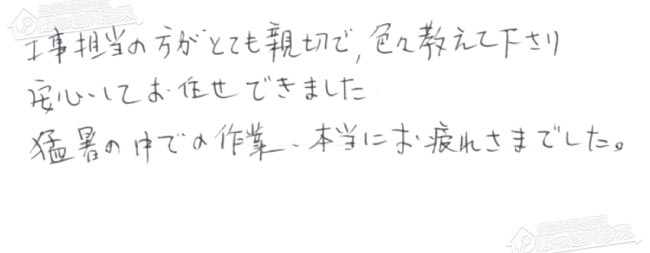 工事担当の方がとても親切で,色々教えて下さり
安心してお任せできました
猛暑の中での作業、本当にお疲れさまでした。